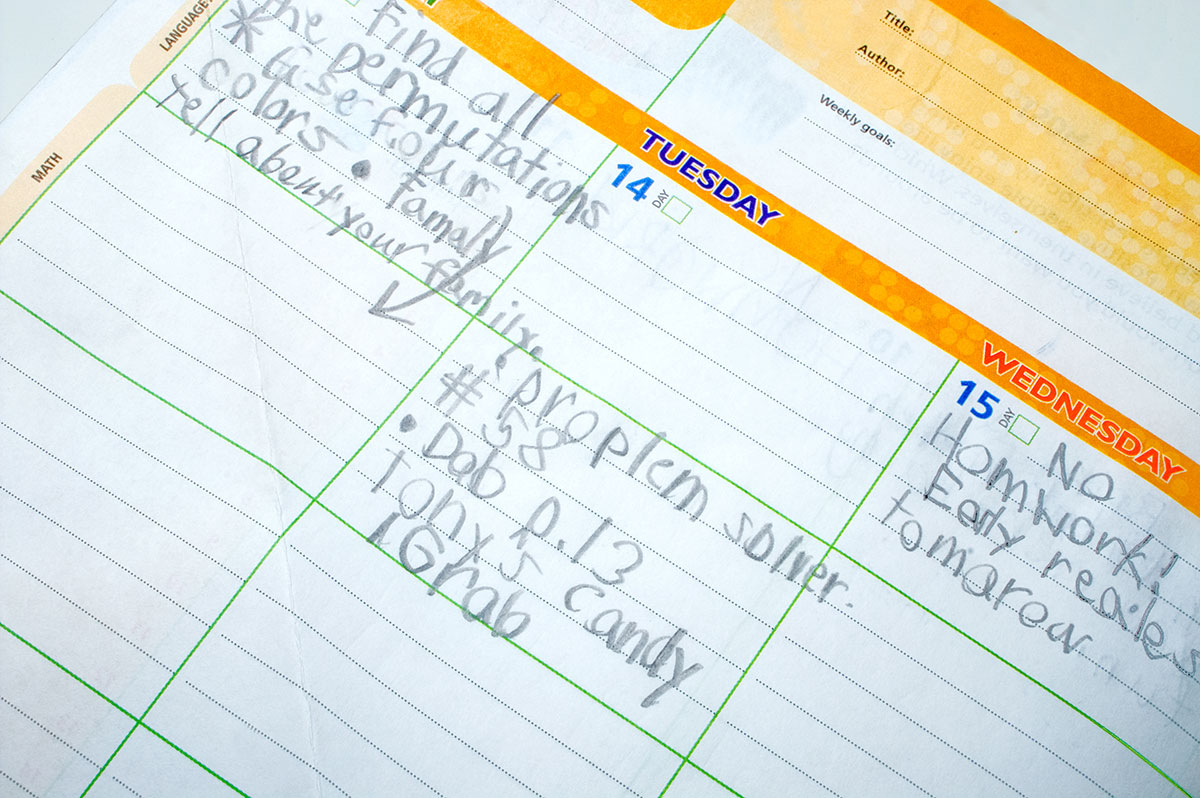 LANGUAGE
MATH
Find all
the permutations
* Use four
colors • Famaly
tell abent your family.
• proplem solver.
# 58
• Dab p.13
Tony's Candy
Grab
TUESDAY
14 DAY
WEDNESDAY
15 DAY
No
Homwork!
Early
tomarow
Title:
Author:
Weekly goals: